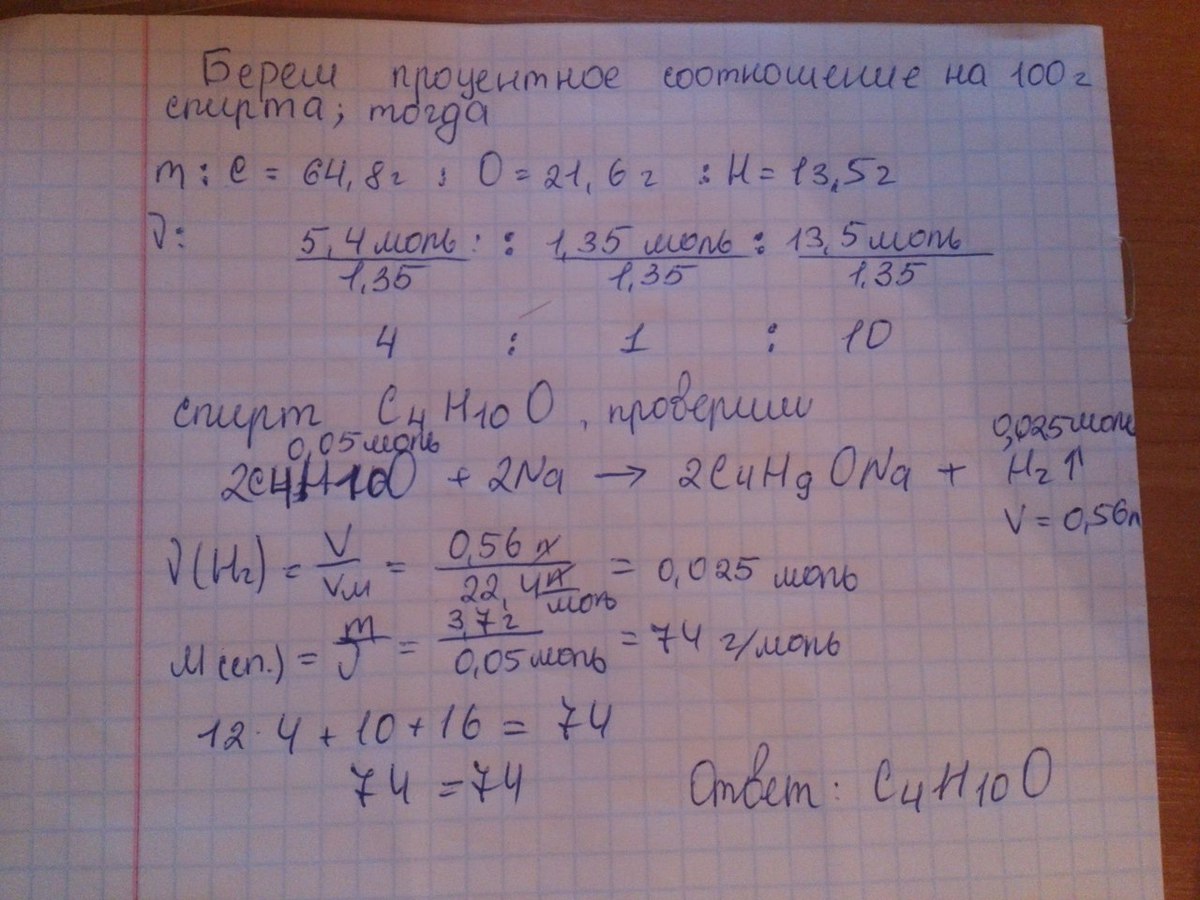 Берем процентное соотношение на 100г
спирта; тогда
m: C = 64,8г : O = 21,6г : H = 13,5г
ν: 5,4 моль : 1,35 моль : 13,5 моль
1,35 1,35 1,35
4 : 1 : 10
спирт C4H10O, проверим
0,05 моль 0,025 моль
2C4H10O + 2Na → 2C4H9ONa + H2↑
V = 0,56л
ν(H2) = V/Vм = 0,56 л / 22,4 л/моль = 0,025 моль
M(сп.) = m/ν = 3,7г / 0,05 моль = 74 г/моль
12·4 + 10 + 16 = 74
74 = 74 Ответ: C4H10O